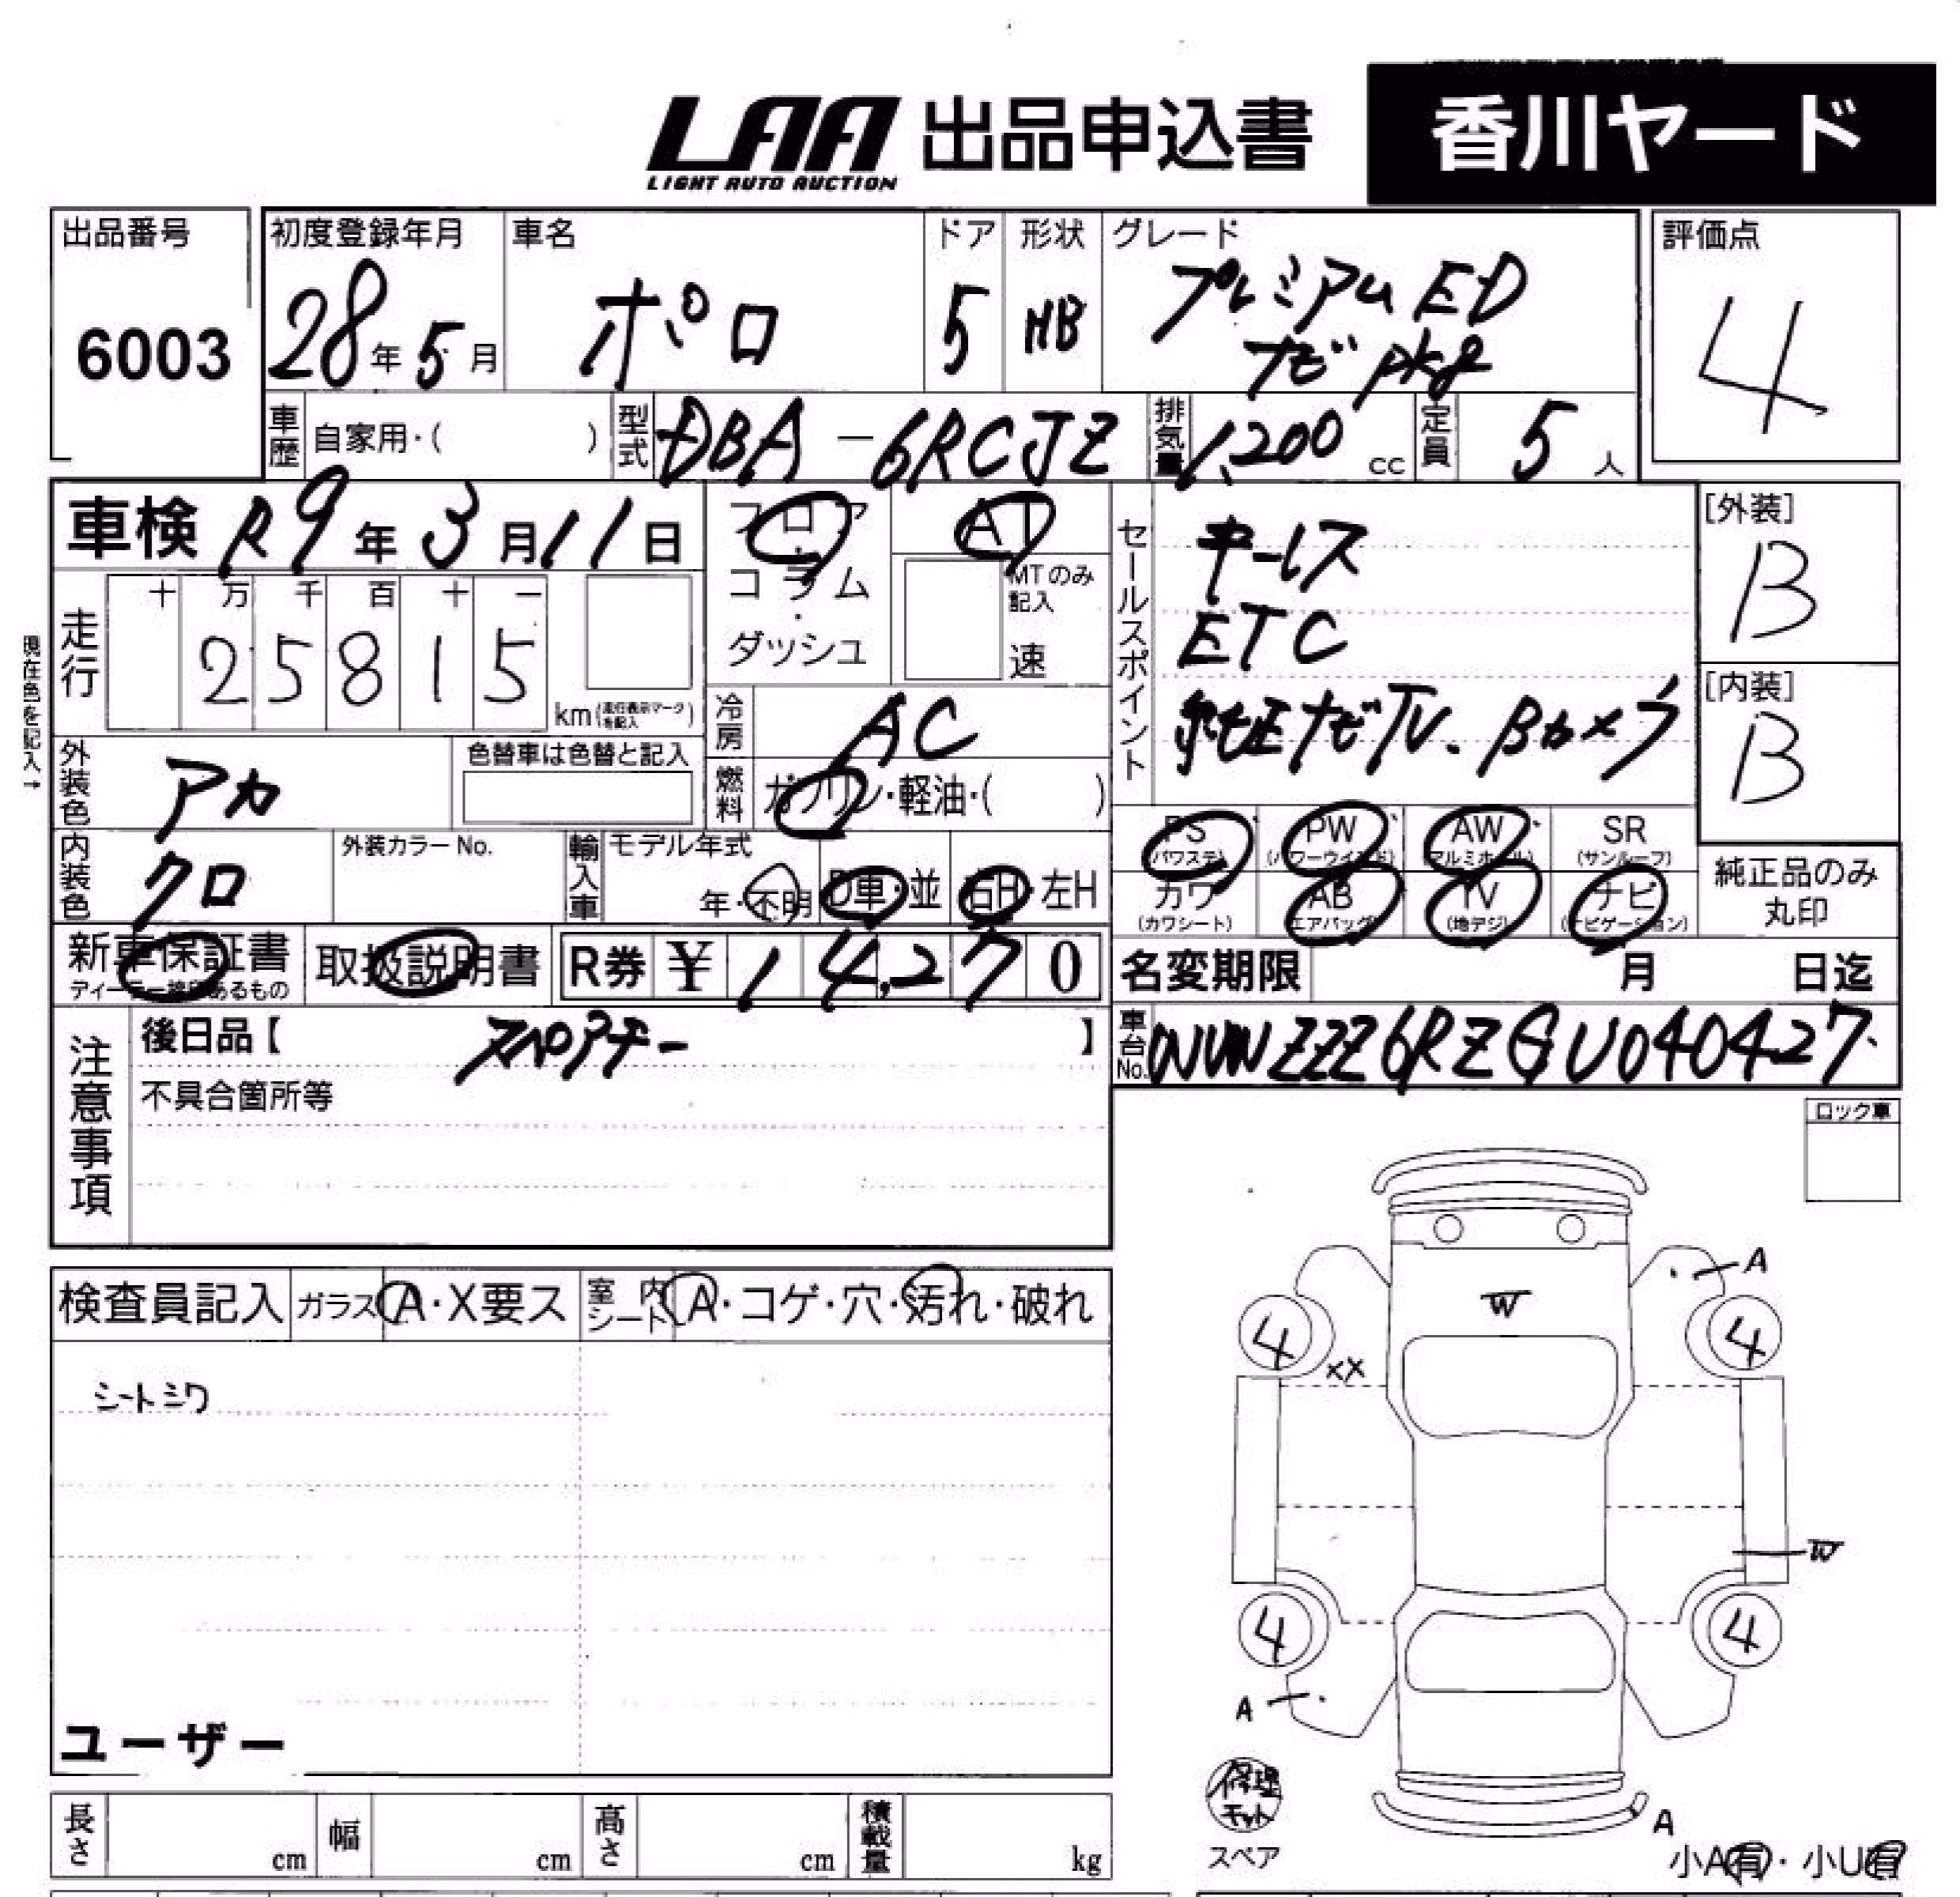 LAA 出品申込書 香川ヤード
LIGHT AUTO AUCTION
出品番号 初度登録年月 車名 ドア 形状 グレード 評価点
6003 28年5月 ポロ 5 HB プレミアムED 4
ナビpkg
車歴 自家用・( ) 型式 DBA-6RCJZ 排気量 1,200cc 定員 5人
車検 R9年3月11日 フロア・コラム・ダッシュ AT
MTのみ記入 速
セールスポイント
キーレス
ETC
純正ナビTV、Bカメラ
[外装]
B
[内装]
B
現在色を記入→
走行 十 万 千 百 十 一
2 5 8 1 5 km(走行表示マークを記入)
冷房 AC
外装色 アカ 色替車は色替と記入
燃料 ガソリン・軽油・( )
内装色 クロ 外装カラーNo. 輸入車 モデル年式 年・不明 D車・並 右H・左H
PS (パワステ) PW (パワーウインド) AW (アルミホイール) SR (サンルーフ)
カワ (カワシート) AB (エアバッグ) TV (地デジ) ナビ (ナビゲーション)
純正品のみ
丸印
新車保証書 取扱説明書 R券 ¥ 14,270
ディーラー捺印あるもの
名変期限 月 日迄
注意事項
後日品【 スペアキー 】
不具合箇所等
車台No. WVWZZZ6RZGU040427
ロック車
検査員記入 ガラス A・X要ス 室内シート A・コゲ・穴・汚れ・破れ
シートシワ
ユーザー
A
W
4 4
XX
W
4 4
A
修理
キット
スペア
A
小A有・小U有
長さ cm 幅 cm 高さ cm 積載量 kg